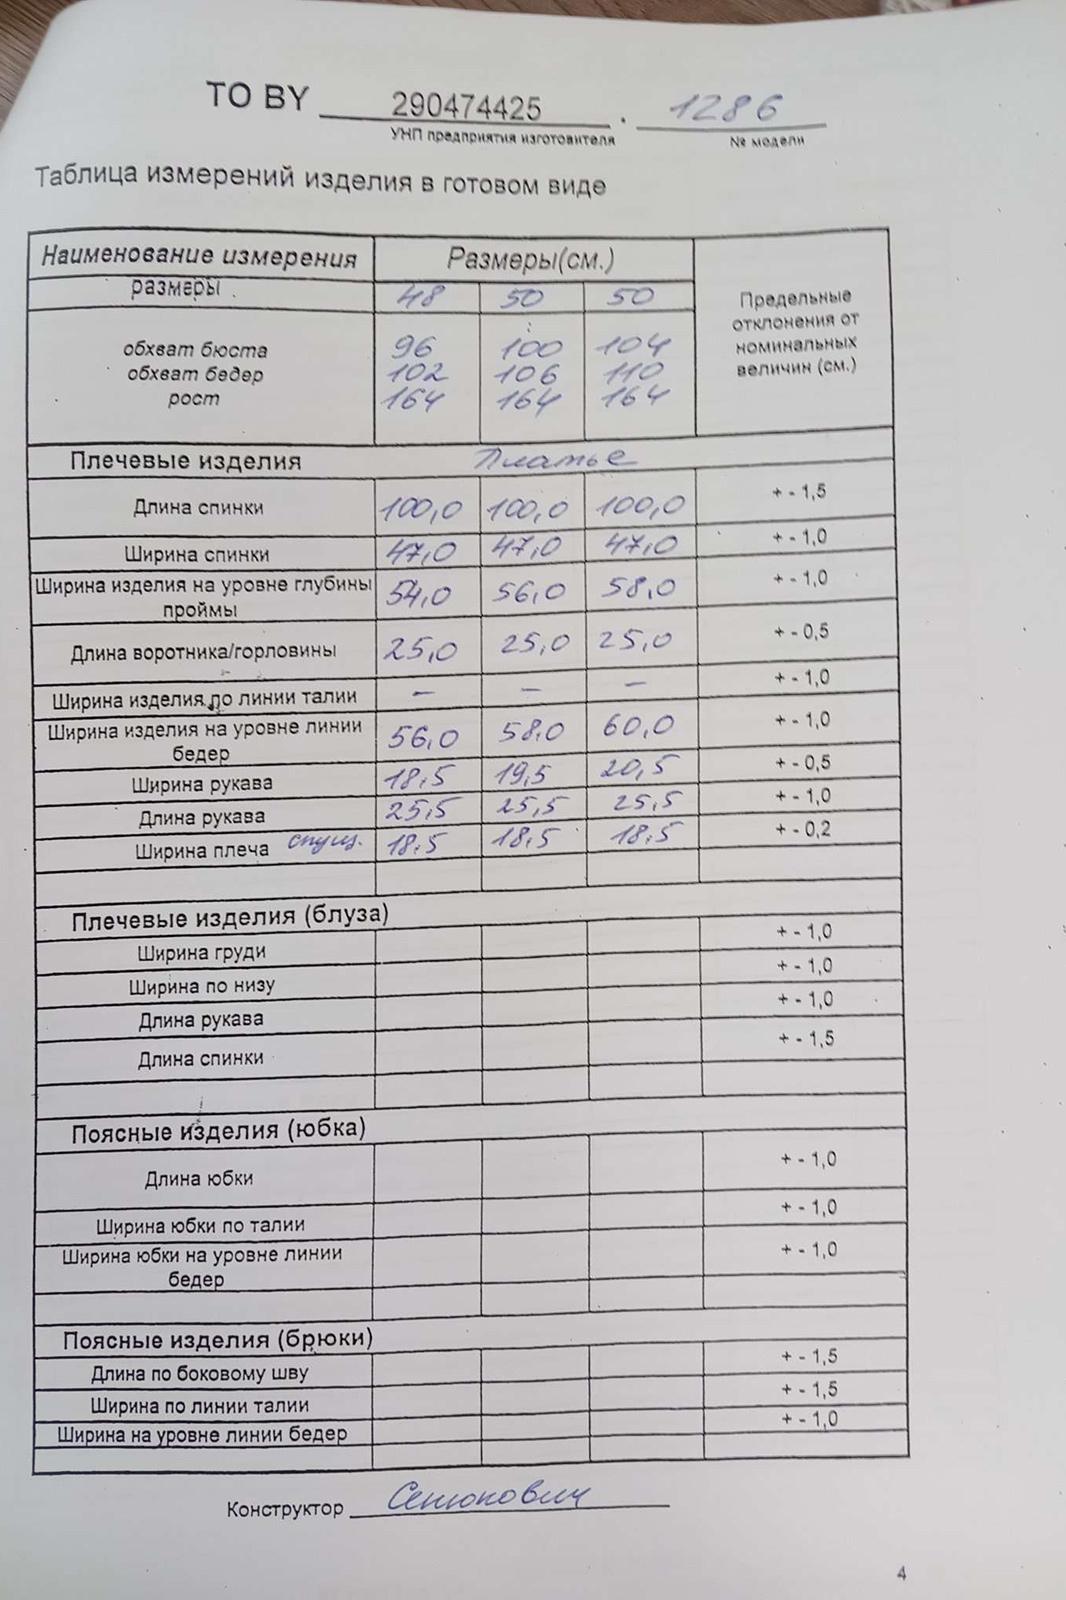 ТО BY 290474425 . 1286
УНП предприятия изготовителя № модели
Таблица измерений изделия в готовом виде
Наименование измерения Размеры(см.) Предельные отклонения от номинальных величин (см.)
размеры 48 50 50
обхват бюста 96 100 104
обхват бедер 102 106 110
рост 164 164 164
Плечевые изделия Платье
Длина спинки 100,0 100,0 100,0 + - 1,5
Ширина спинки 47,0 47,0 47,0 + - 1,0
Ширина изделия на уровне глубины проймы 54,0 56,0 58,0 + - 1,0
Длина воротника/горловины 25,0 25,0 25,0 + - 0,5
Ширина изделия по линии талии – – – + - 1,0
Ширина изделия на уровне линии бедер 56,0 58,0 60,0 + - 1,0
Ширина рукава 18,5 19,5 20,5 + - 0,5
Длина рукава 25,5 25,5 25,5 + - 1,0
Ширина плеча спущ. 18,5 18,5 18,5 + - 0,2
Плечевые изделия (блуза)
Ширина груди + - 1,0
Ширина по низу + - 1,0
Длина рукава + - 1,0
Длина спинки + - 1,5
Поясные изделия (юбка)
Длина юбки + - 1,0
Ширина юбки по талии + - 1,0
Ширина юбки на уровне линии бедер + - 1,0
Поясные изделия (брюки)
Длина по боковому шву + - 1,5
Ширина по линии талии + - 1,5
Ширина на уровне линии бедер + - 1,0
Конструктор Сенюкович
4